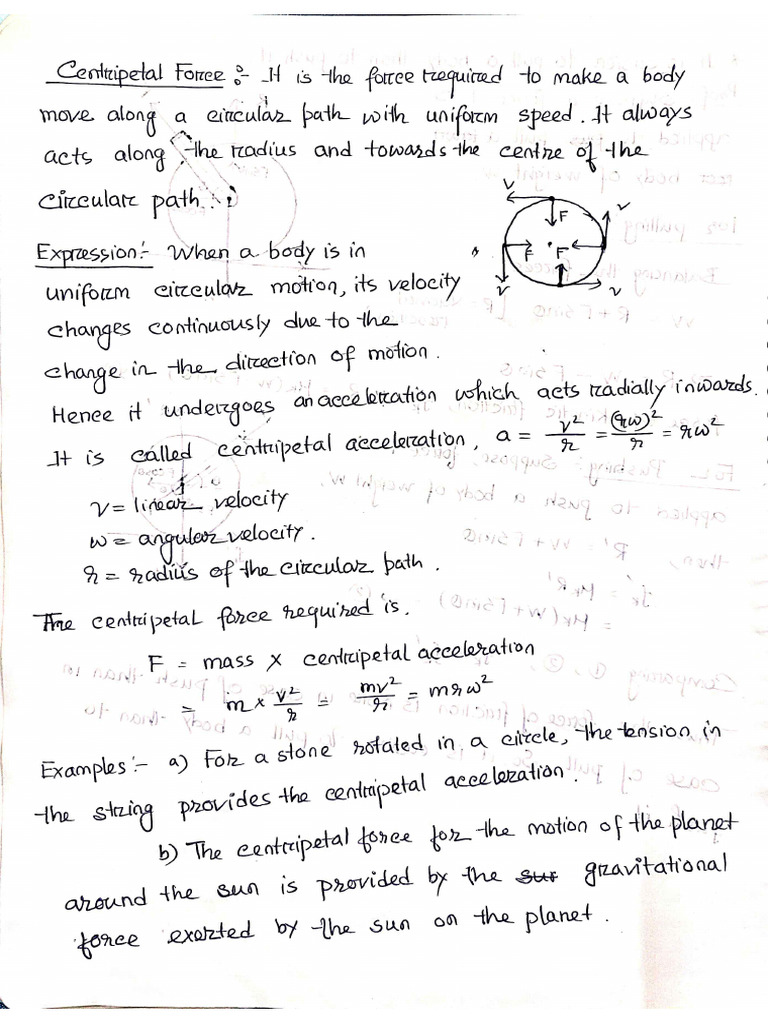 Centripetal Force :- It is the force required to make a body
move along a circular path with uniform speed. It always
acts along the radius and towards the centre of the
circular path.
v
F
v
F
F
v
v
Expression :- When a body is in
uniform circular motion, its velocity
changes continuously due to the
change in the direction of motion.
Hence it undergoes an acceleration which acts radially inwards.
It is called centripetal acceleration, a = v²/r = (rω)²/r = rω²
v = linear velocity
ω = angular velocity.
r = radius of the circular path.
The centripetal force required is.
F = mass × centripetal acceleration
= m × v²/r = mv²/r = mrω²
Examples :- a) For a stone rotated in a circle, the tension in
the string provides the centripetal acceleration.
b) The centripetal force for the motion of the planet
around the sun is provided by the gravitational
force exerted by the sun on the planet.